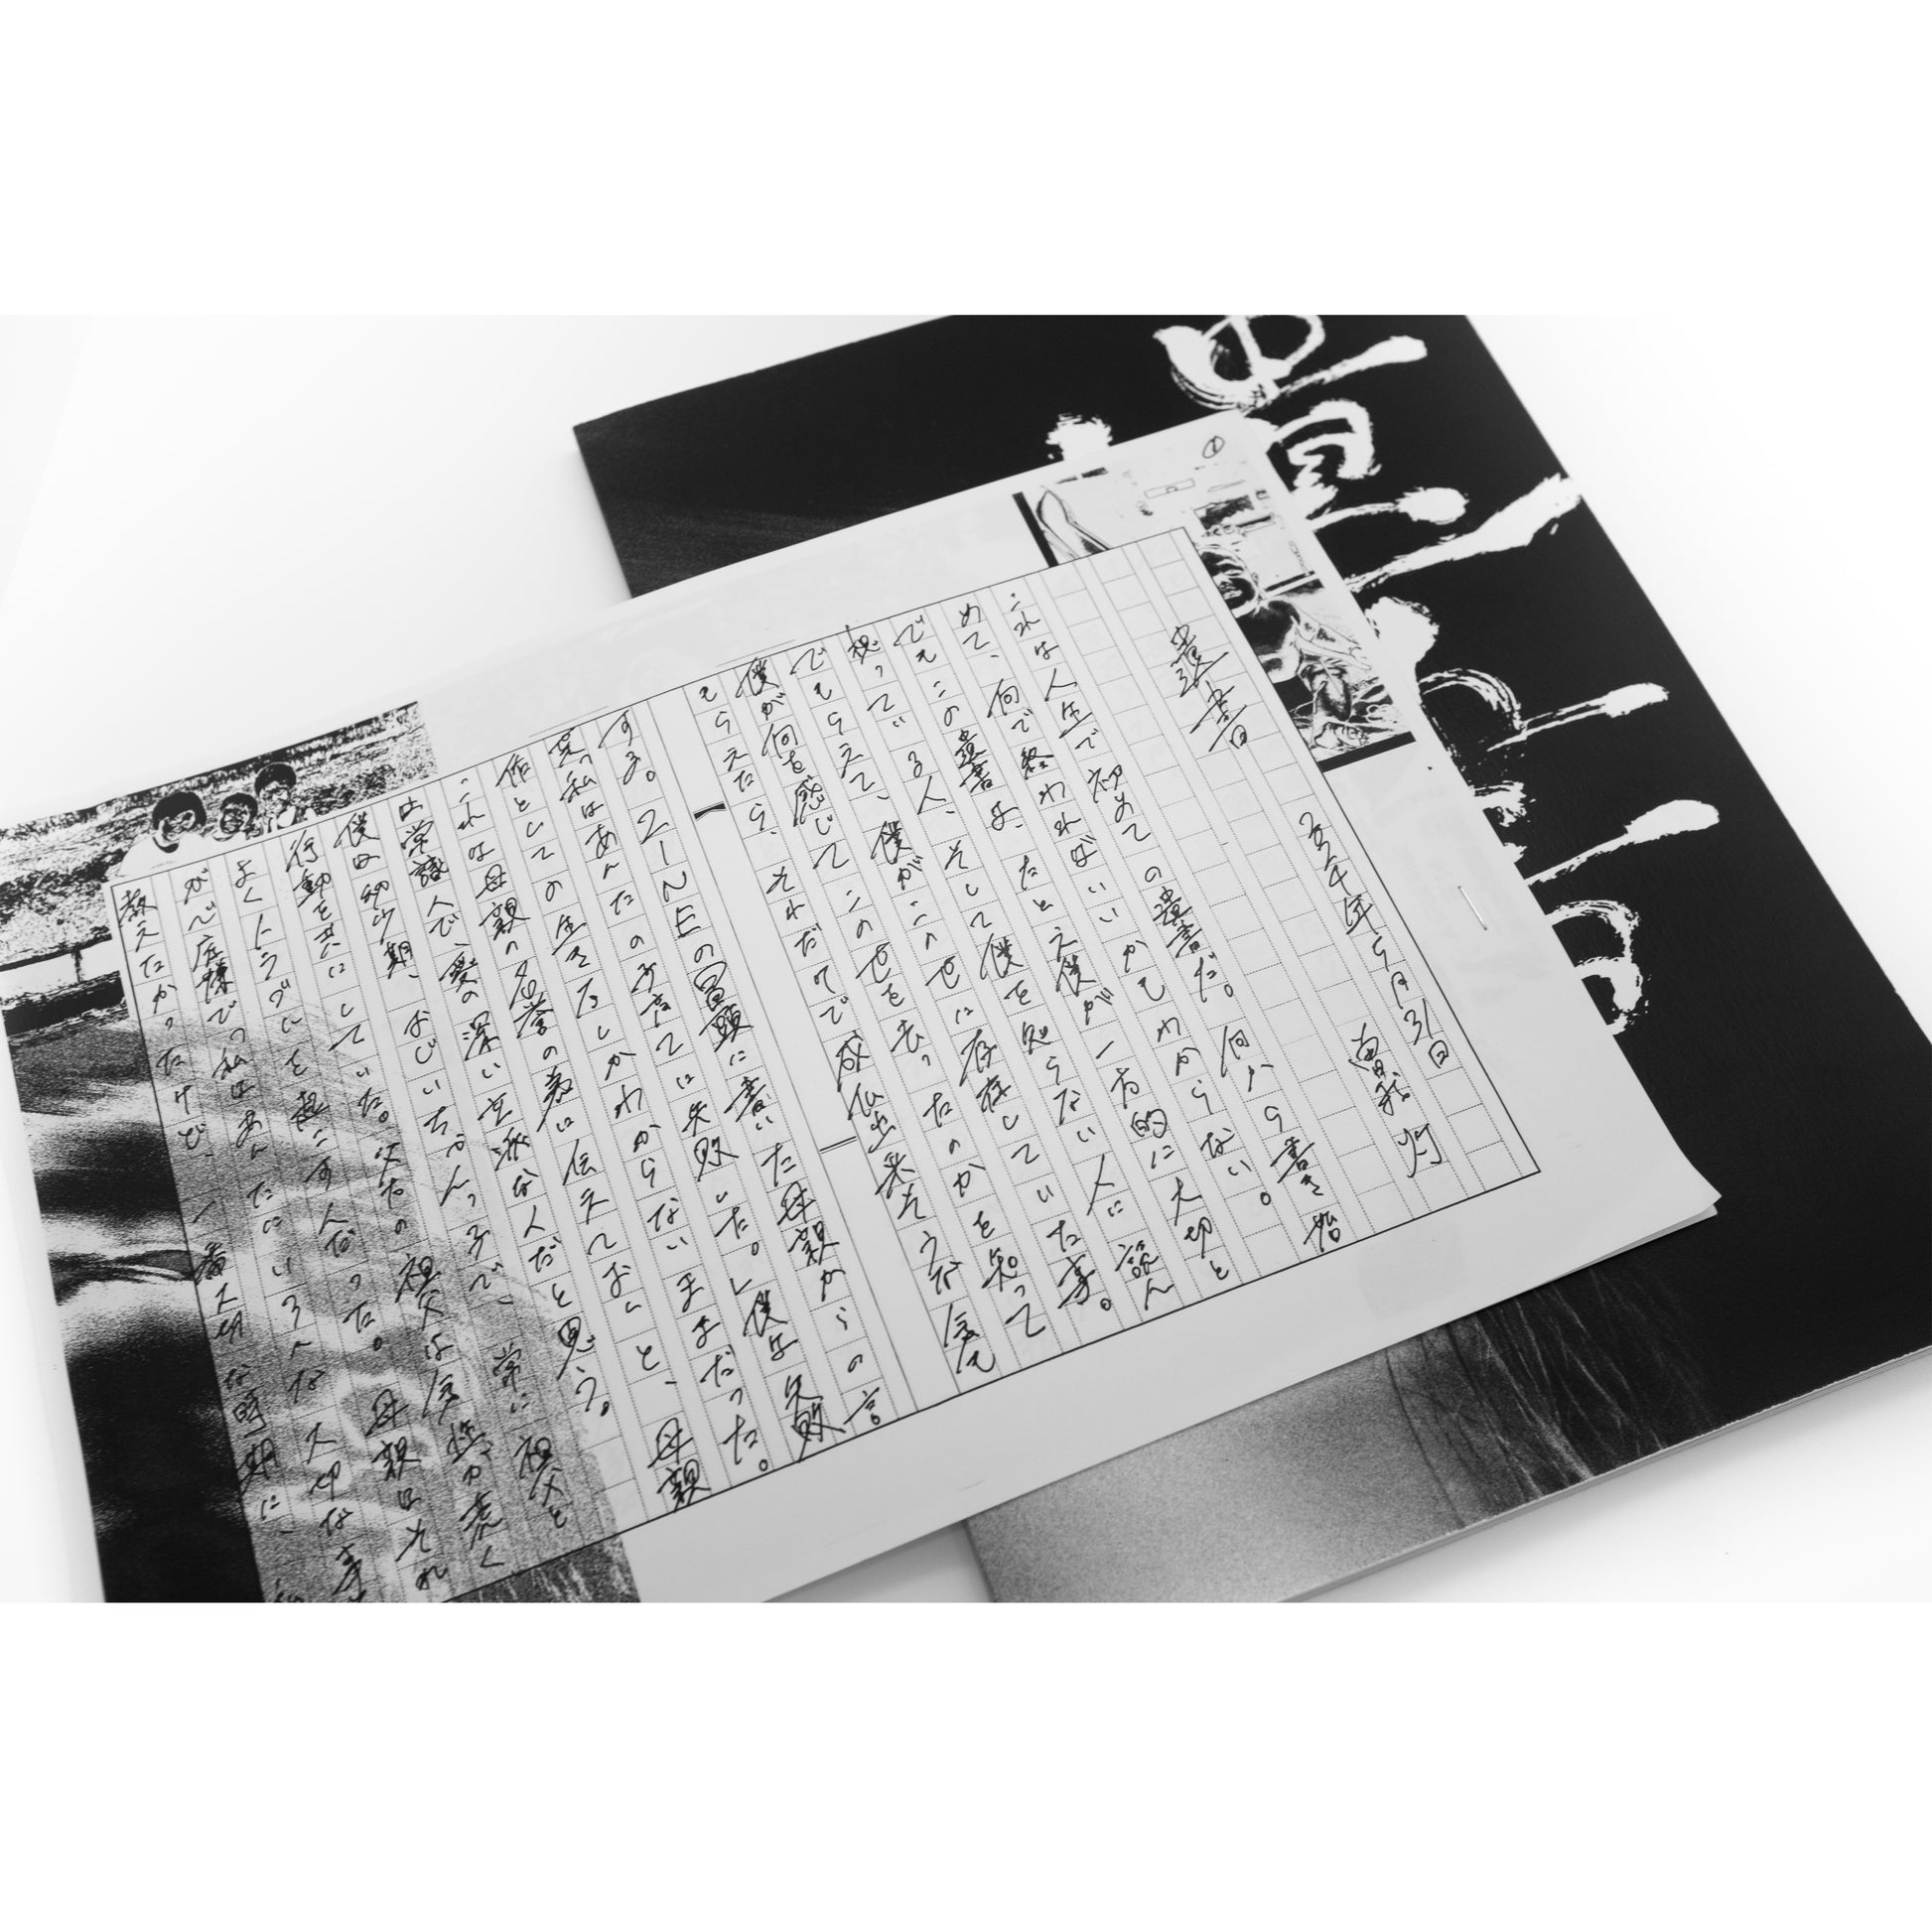 遺書
2024年5月31日
曽我 灯
これは人生で初めての遺書だ。何から書き始
めて、何で終わればいいかもわからない。
でもこの遺書は、たとえ僕が一方的に大切と
想っている人、そして僕を知らない人に読ん
でもらえて、僕がこの世に存在していた事。
僕が何を感じてこの世を去ったのかを知って
もらえたら、それだけで成仏出来そうな気も
する。ZINEの冒頭に書いた母親からの言
葉「私はあんたの子育てには失敗した。」僕は失敗
作としての生き方しかわからないままだった。
これは母親の名誉の為に伝えておくと、母親
は常識人で、愛の深い立派な人だと思う。
僕は幼少期、おじいちゃんっ子で、常に祖父と
行動を共にしていた。父方の祖父は気性が荒く
よくトラブルを起こす人だった。母親はそれ
が心底嫌で「私はあんたにいろんな大切な事
教えたかったけど、一番大切な時期に、